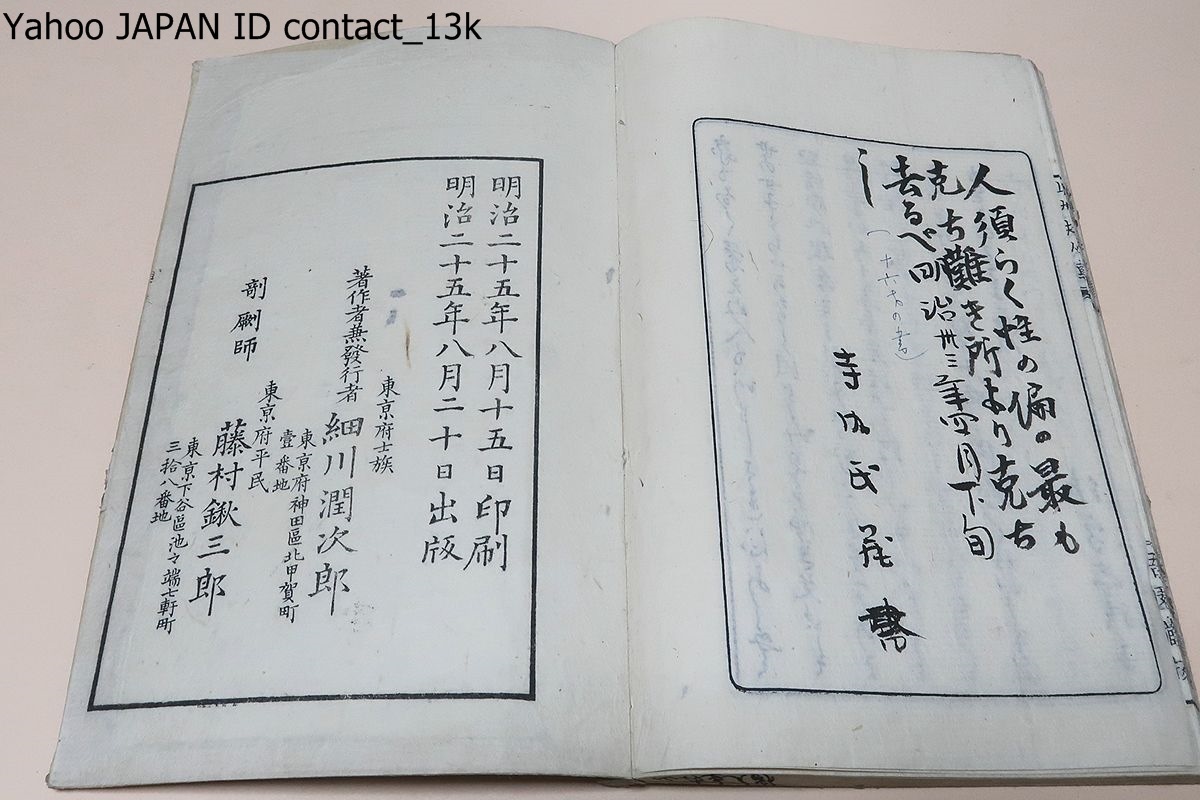 Yahoo JAPAN ID contact_13k
人須らく性の偏の最も
克ち難き所より克ち
去るべ
し
明治卅三年四月下旬
明治二十五年八月十五日印刷
明治二十五年八月二十日出版
東京府士族
著作者兼發行者 細川潤次郎
東京府神田區北甲賀町
壹番地
東京府平民
剞劂師 藤村鍬三郎
東京下谷區池之端七軒町
三拾八番地